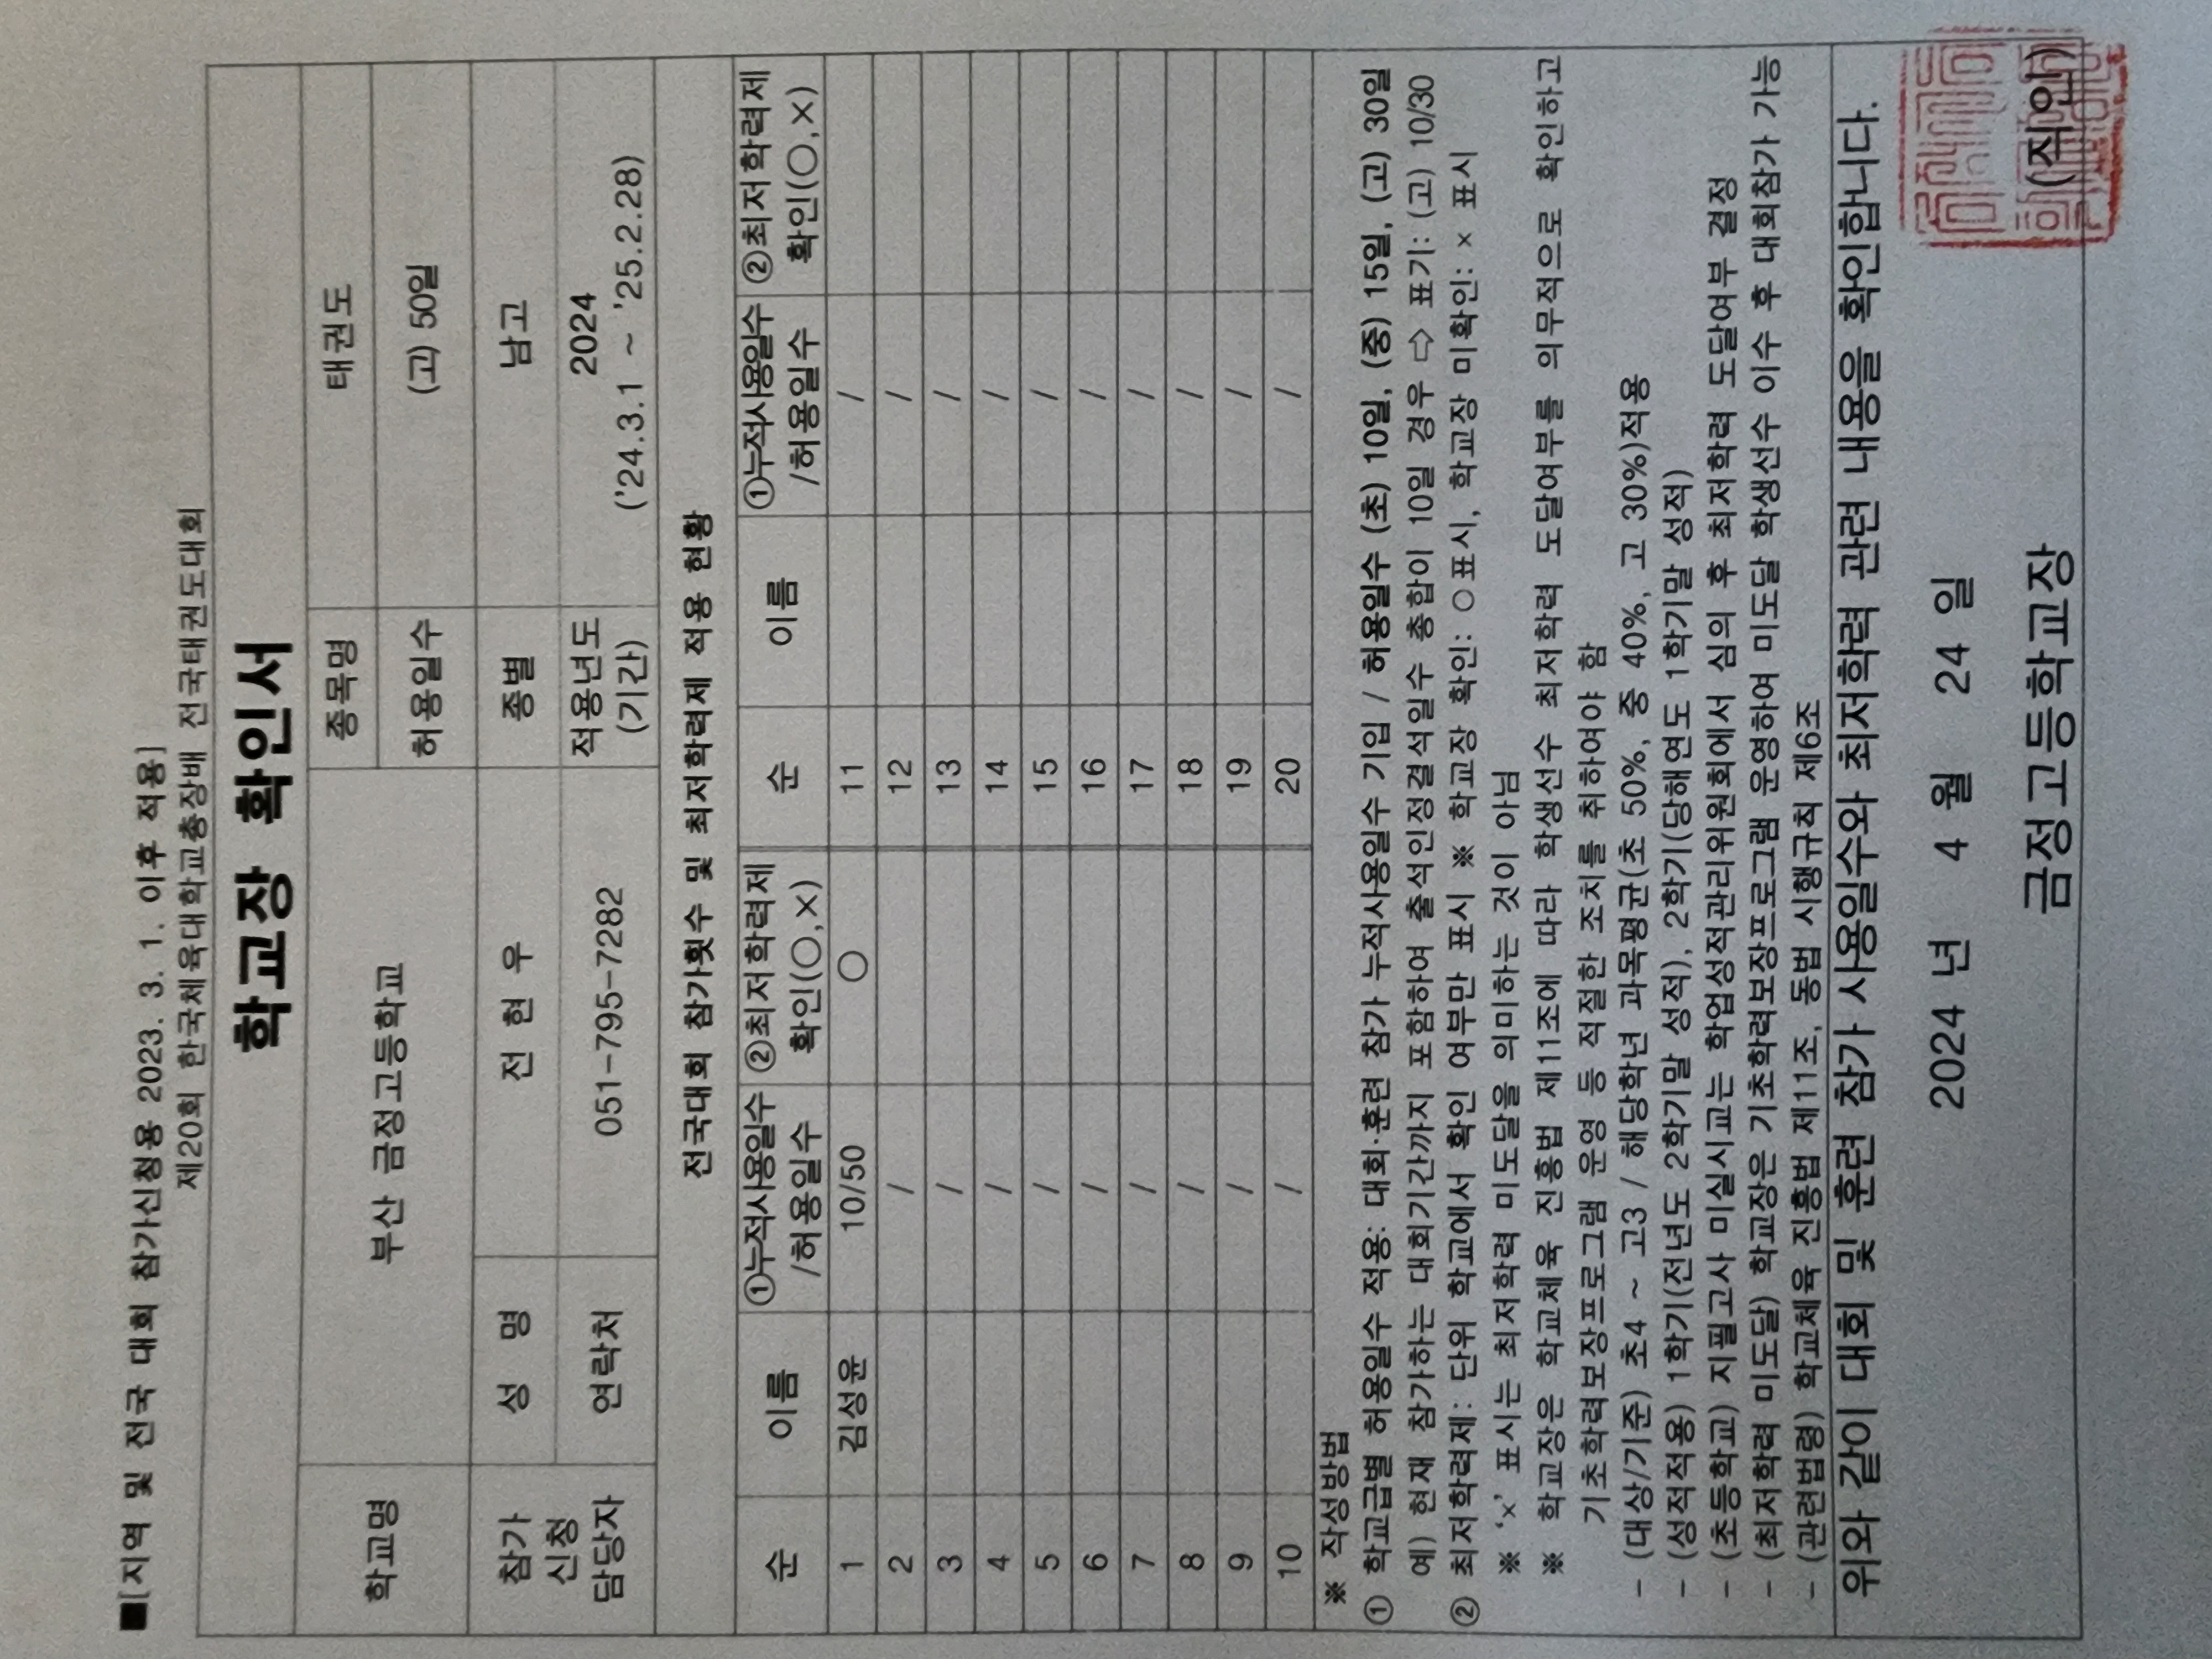 ■[지역 및 전국 대회 참가신청용 2023. 3. 1. 이후 적용]
제20회 한국체육대학교총장배 전국태권도대회
학교장 확인서
학교명 부산 금정고등학교 종목명 태권도
허용일수 (고) 50일
참가 신청 담당자 성 명 전 현 우 종별 남고
연락처 051-795-7282 적용년도 (기간) 2024
('24.3.1 ~ '25.2.28)
전국대회 참가횟수 및 최저학력제 적용 현황
순 이름 ①누적사용일수 /허용일수 ②최저학력제 확인(○,×) 순 이름 ①누적사용일수 /허용일수 ②최저학력제 확인(○,×)
1 김성윤 10/50 ○ 11 /
2 / 12 /
3 / 13 /
4 / 14 /
5 / 15 /
6 / 16 /
7 / 17 /
8 / 18 /
9 / 19 /
10 / 20 /
※ 작성방법
① 학교급별 허용일수 적용: 대회·훈련 참가 누적사용일수 기입 / 허용일수 (초) 10일, (중) 15일, (고) 30일
예) 현재 참가하는 대회기간까지 포함하여 출석인정결석일수 총합이 10일 경우 ⇨ 표기: (고) 10/30
② 최저학력제: 단위 학교에서 확인 여부만 표시 ※ 학교장 확인: ○표시, 학교장 미확인: × 표시
※ '×' 표시는 최저학력 미도달을 의미하는 것이 아님
※ 학교장은 학교체육 진흥법 제11조에 따라 학생선수 최저학력 도달여부를 의무적으로 확인하고
기초학력보장프로그램 운영 등 적절한 조치를 취하여야 함
- (대상/기준) 초4 ~ 고3 / 해당학년 과목평균(초 50%, 중 40%, 고 30%)적용
- (성적적용) 1학기(전년도 2학기말 성적), 2학기(당해연도 1학기말 성적)
- (초등학교) 지필고사 미실시교는 학업성적관리위원회에서 심의 후 최저학력 도달여부 결정
- (최저학력 미도달) 학교장은 기초학력보장프로그램 운영하여 미도달 학생선수 이수 후 대회참가 가능
- (관련법령) 학교체육 진흥법 제11조, 동법 시행규칙 제6조
위와 같이 대회 및 훈련 참가 사용일수와 최저학력 관련 내용을 확인합니다.
2024 년 4 월 24 일
금정고등학교장 (직인)